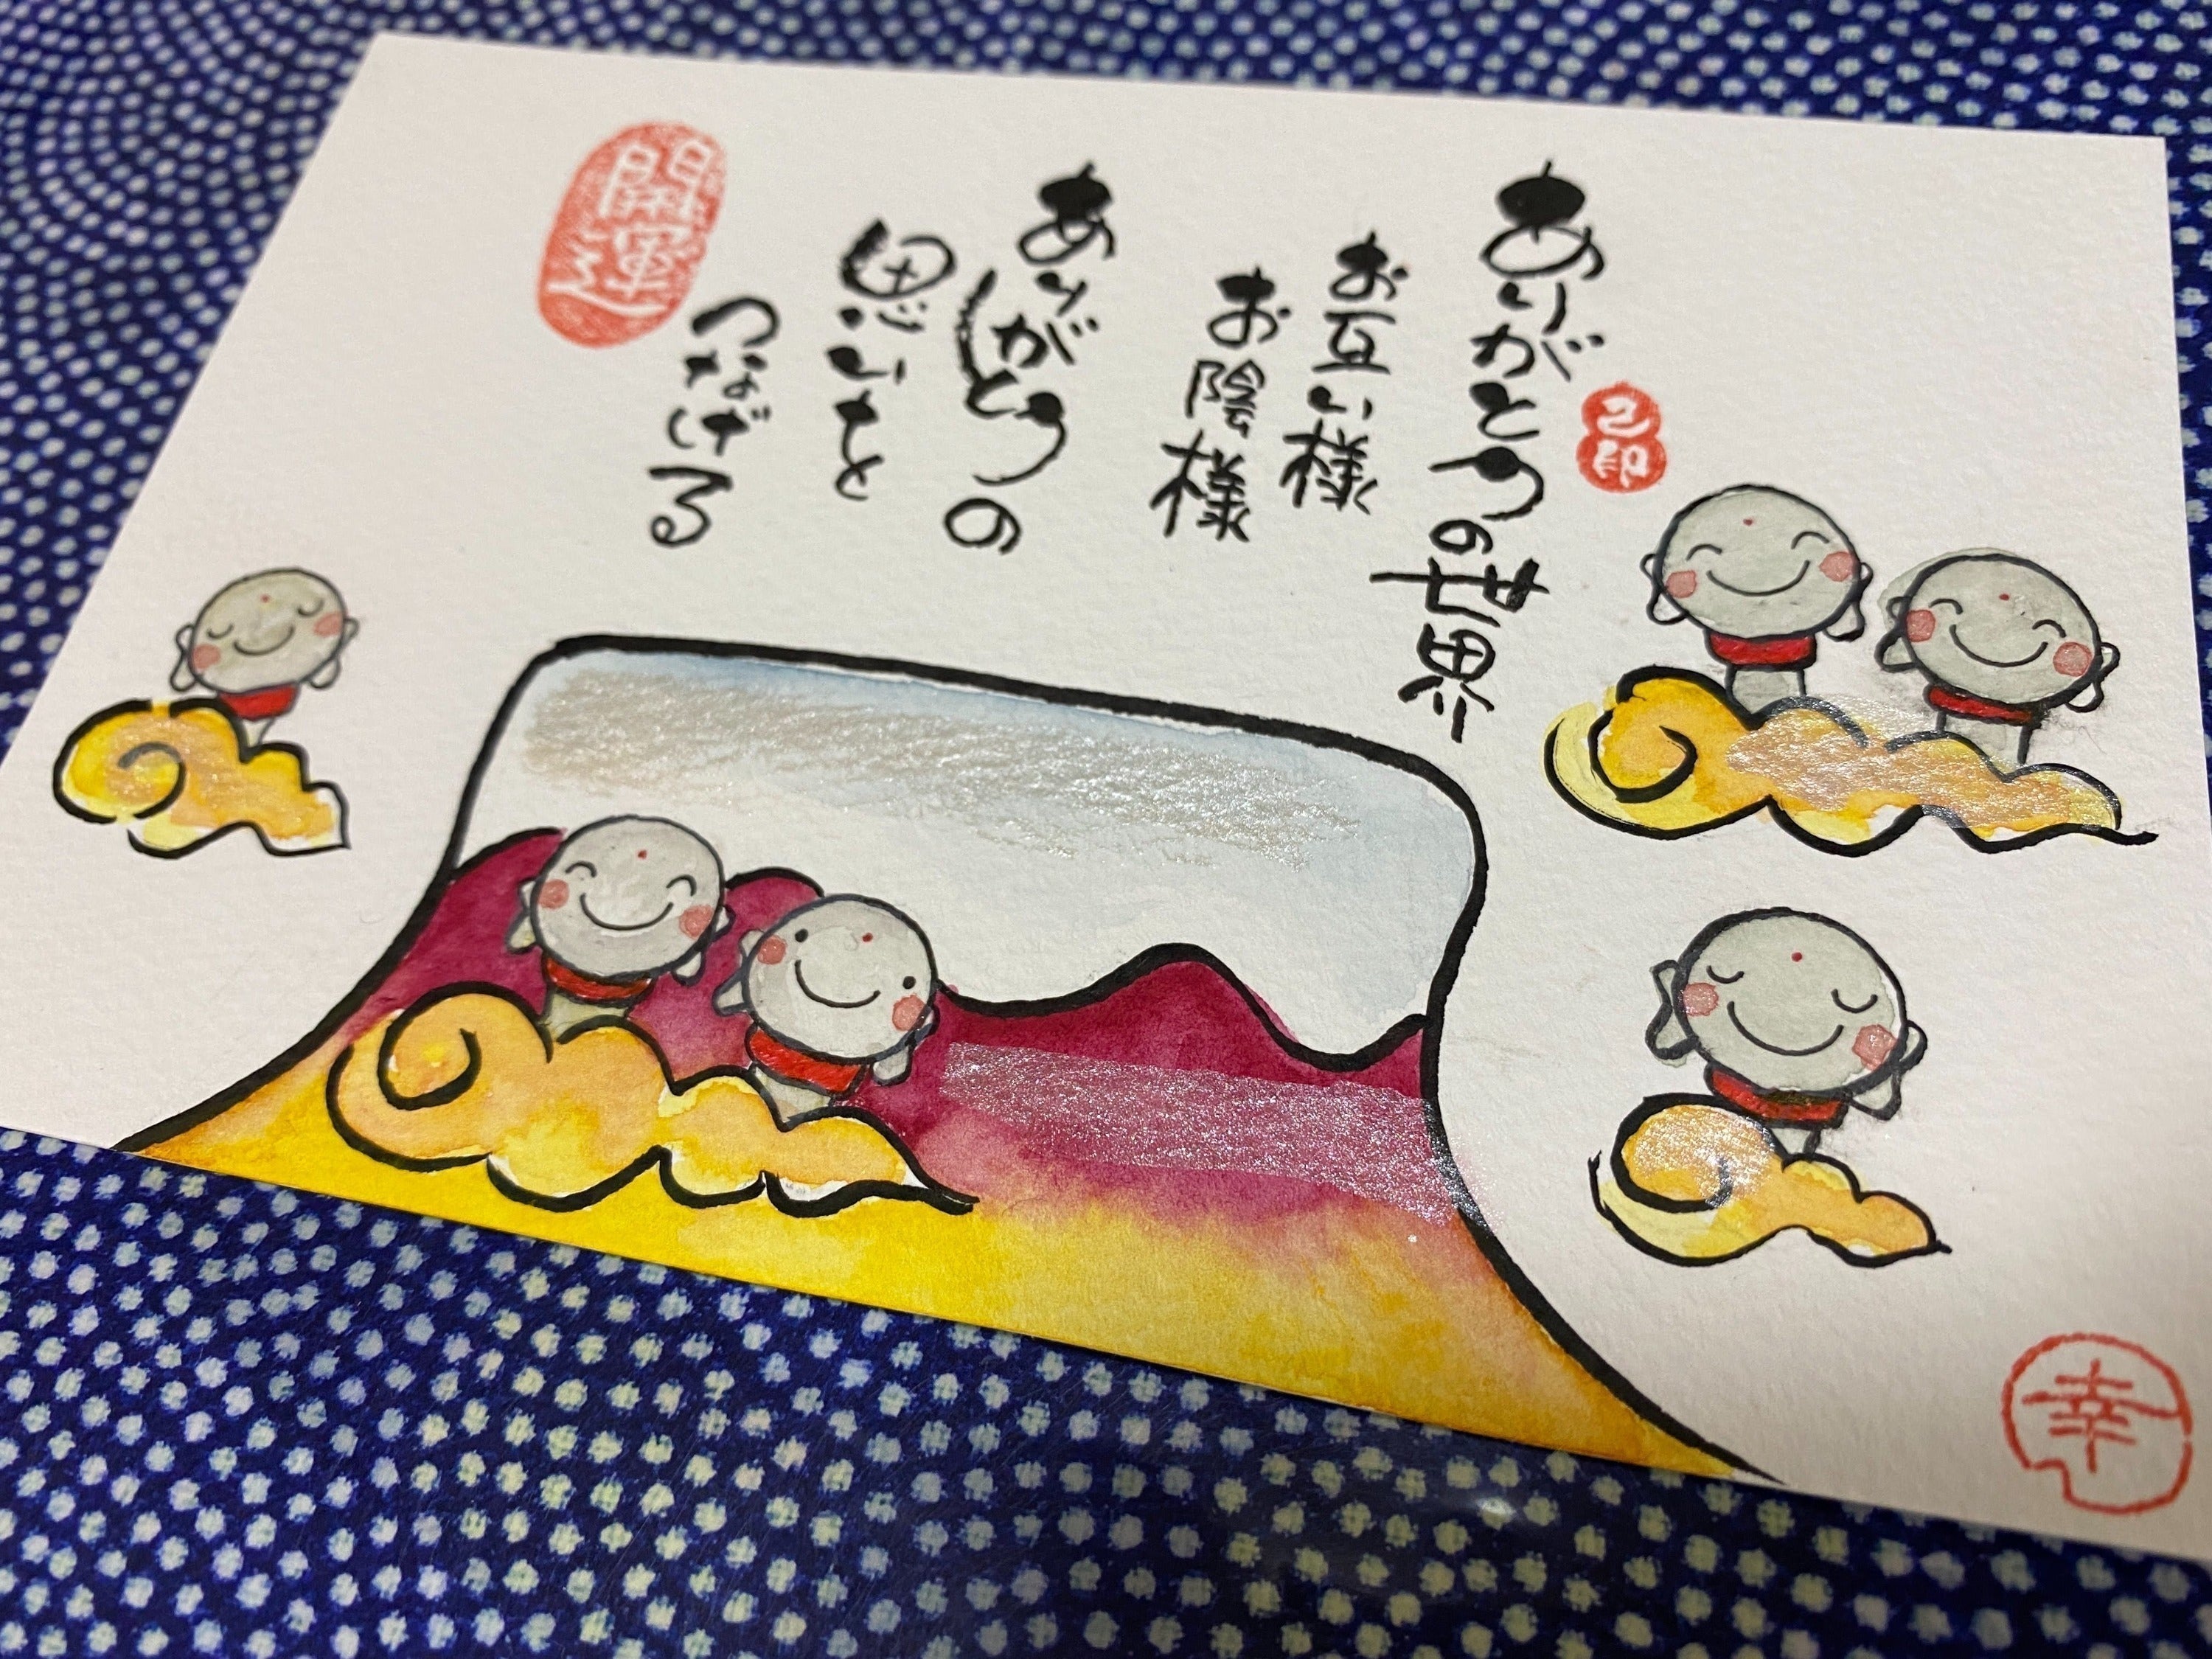 ありがとうの世界
お互い様
お陰様
ありがとうの
思いを
つなげる
己印
開運
幸